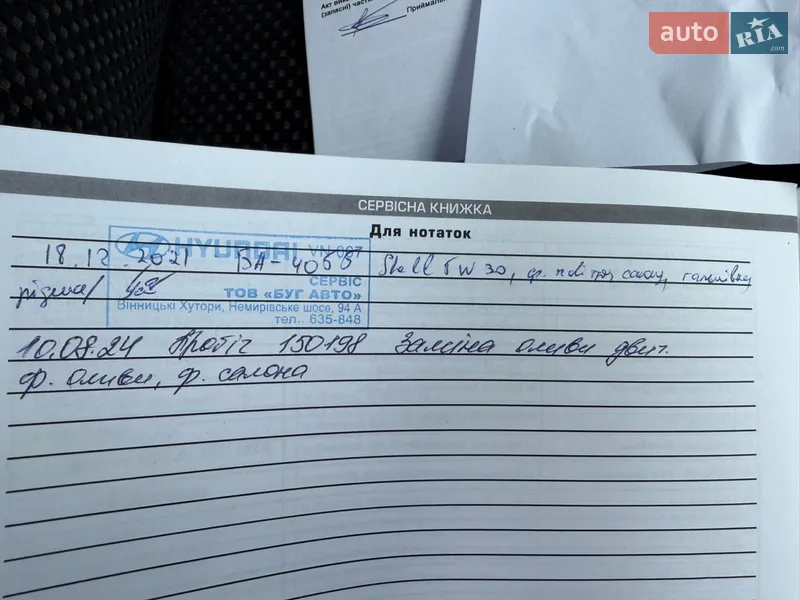 Акт вик
(запасні) част
Приймаль
auto RIA.com
СЕРВІСНА КНИЖКА
Для нотаток
HYUNDAI VN 007
18.12.2021 БА-4058 Shell 5W30, ф. повітря, салону, гальмівну
рідина/
СЕРВІС
ТОВ «БУГ АВТО»
Вінницькі Хутори, Немирівське шосе, 94 А
тел. 635-848
10.08.24 Пробіг 150198 Заміна оливи двиг.
ф. оливи, ф. салона